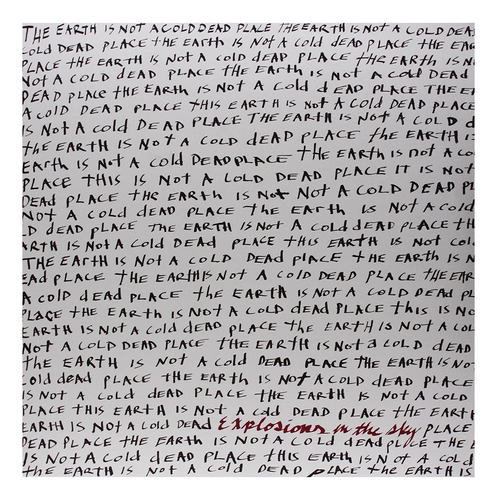 THE EARTH IS NOT A COLD DEAD PLACE THE EARTH IS NOT A COLD DEAD
COLD DEAD PLACE THE EARTH IS NOT A COLD DEAD PLACE THE EAR
PLACE THE EARTH IS NOT A COLD DEAD PLACE THE EARTH IS NOT
NOT A COLD DEAD PLACE THE EARTH IS NOT A COLD DEAD
DEAD PLACE THE EARTH IS NOT A COLD DEAD PLACE THE E
A COLD DEAD PLACE THIS EARTH IS NOT A COLD DEAD PLACE
IS NOT A COLD DEAD PLACE THE EARTH IS NOT A COLD D
THE EARTH IS NOT A COLD DEAD PLACE THE EARTH IS
EARTH IS NOT A COLD DEAD PLACE THE EARTH IS NOT A COL
PLACE THIS IS NOT A COLD DEAD PLACE IT IS NOT
DEAD PLACE THE EARTH IS NOT NOT A COLD DEAD PL
NOT A COLD DEAD PLACE THE EARTH IS NOT A COLD
D DEAD PLACE THE EARTH IS NOT A COLD DEAD PLACE TH
ARTH IS NOT A COLD DEAD PLACE THIS EARTH IS NOT COLD
THE EARTH IS NOT A COLD DEAD PLACE THE EARTH IS N
EAD PLACE THE EARTH IS NOT A COLD DEAD PLACE THE EAR
A COLD DEAD PLACE THE EARTH IS NOT A COLD DEAD PLACE
PLACE THE EARTH IS NOT A COLD DEAD PLACE THIS IS NO
EARTH IS NOT A COLD DEAD PLACE THE EARTH IS NOT A COL
NOT A COLD DEAD PLACE THE EARTH IS NOT A COLD DEAD
THE EARTH IS NOT A COLD DEAD PLACE THE EARTH IS NOT
COLD DEAD PLACE THE EARTH IS NOT A COLD DEAD PLACE
IS NOT A COLD DEAD PLACE THE EARTH IS NOT A COLD
PLACE THIS EARTH IS NOT A COLD DEAD PLACE THE EARTH
EARTH IS NOT A COLD DEAD Explosions in the sky PLACE
DEAD PLACE THE EARTH IS NOT A COLD DEAD PLACE THE E
THE EARTH IS NOT A COLD DEAD PLACE THE EARTH IS N